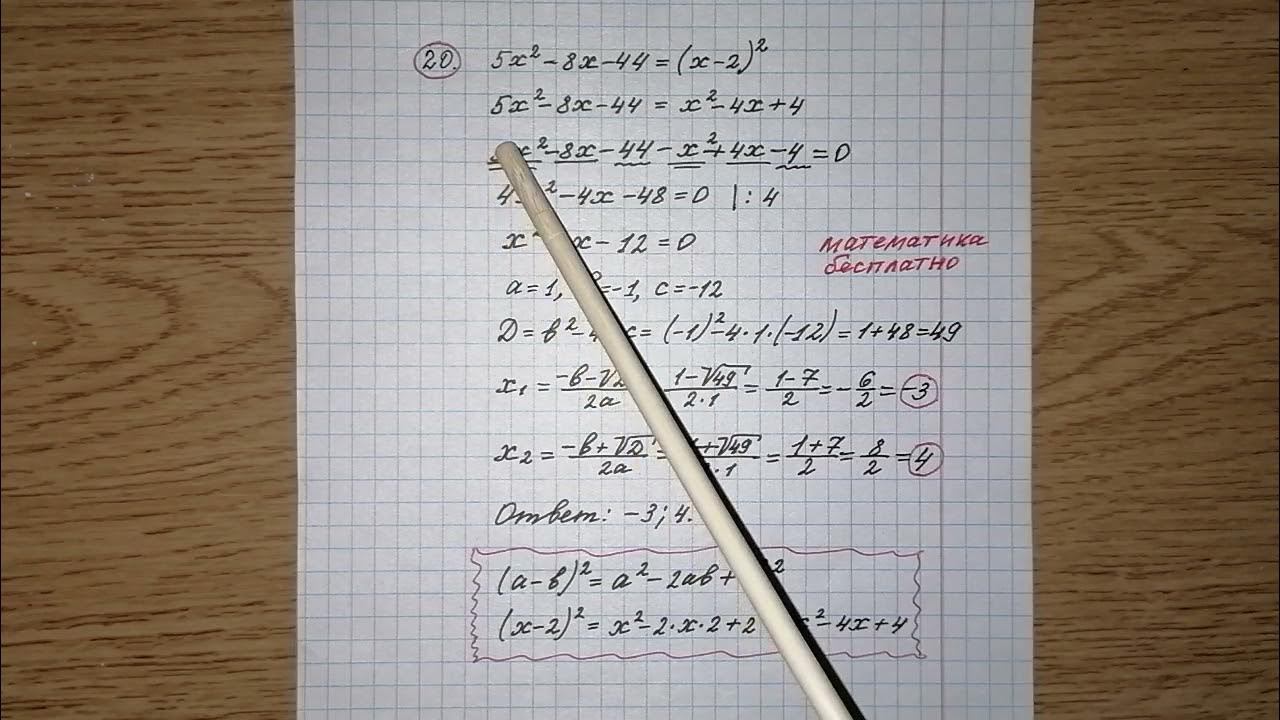 20. 5x² - 8x - 44 = (x-2)²
5x² - 8x - 44 = x² - 4x + 4
x² - 8x - 44 - x² + 4x - 4 = 0
4 ² - 4x - 48 = 0 | : 4
x x - 12 = 0
математика
бесплатно
a = 1, = -1, c = -12
Д = в² - 4 c = (-1)² - 4 · 1 · (-12) = 1 + 48 = 49
x₁ = (-в - √ )/2a (1 - √49)/(2·1) = (1 - 7)/2 = -6/2 = -3
x₂ = (-в + √Д)/2a = + √49/ · 1 = (1 + 7)/2 = 8/2 = 4
Ответ: -3; 4.
(a - в)² = a² - 2aв + ²
(x - 2)² = x² - 2 · x · 2 + 2 x² - 4x + 4